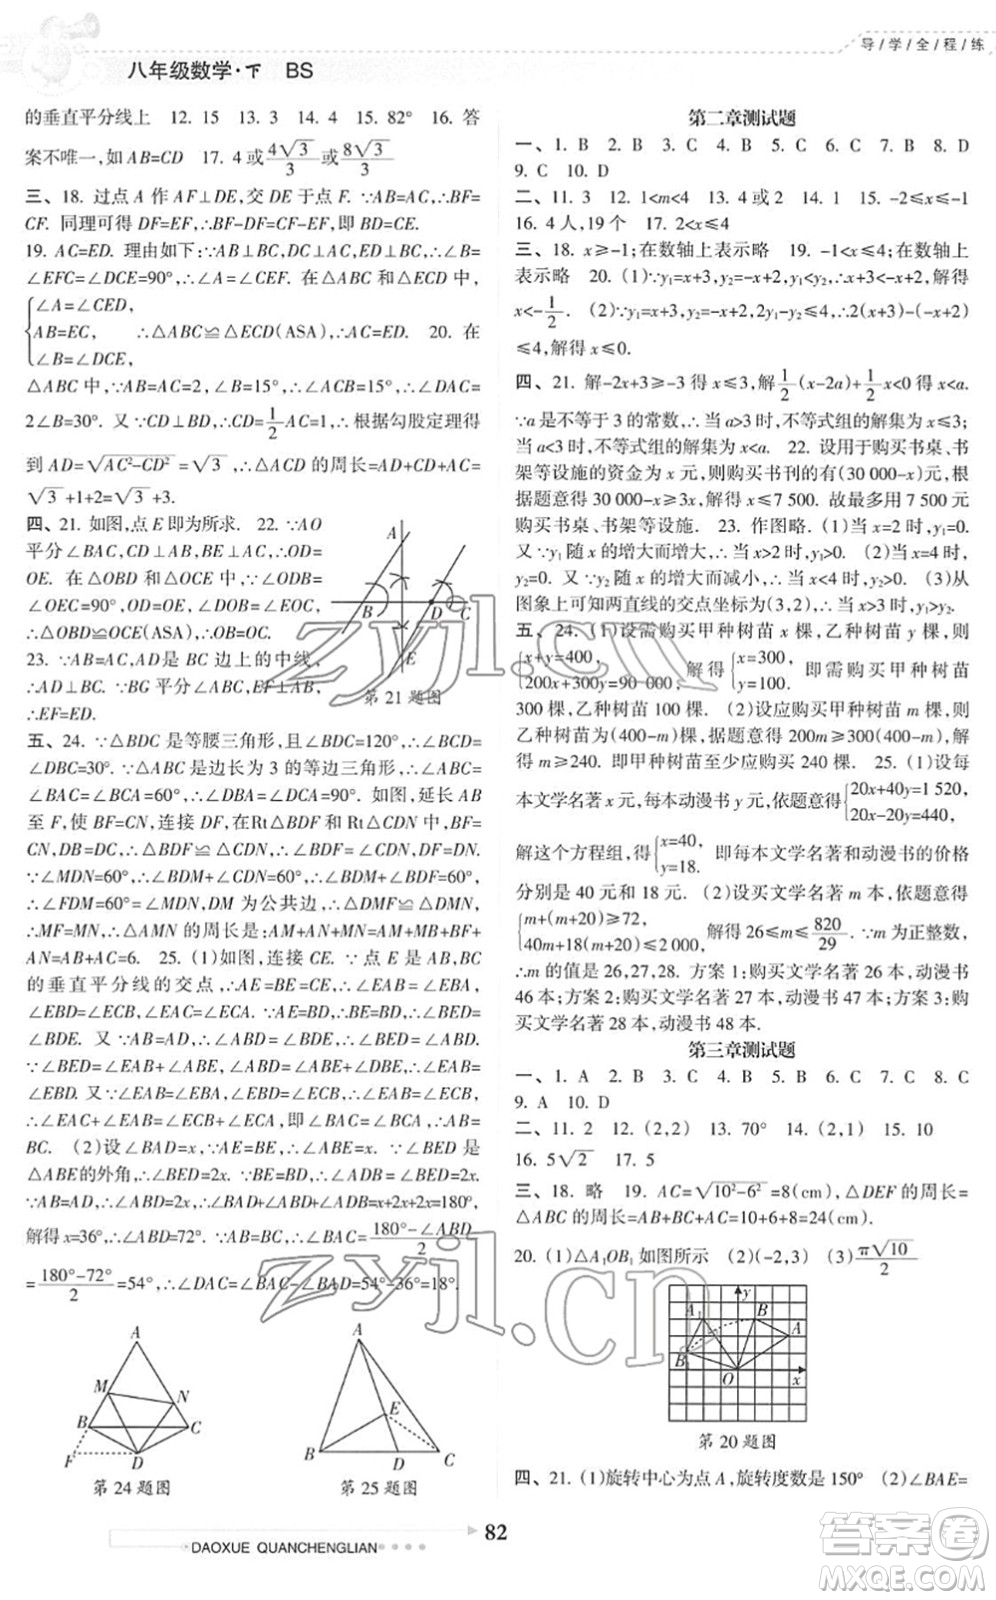 导/学/全/程/练
八年级数学·下 BS
的垂直平分线上 12. 15 13. 3 14. 4 15. 82° 16. 答
案不唯一,如 AB=CD 17. 4 或4√3/3或8√3/3
三、18. 过点 A 作 AF⊥DE,交 DE 于点 F. ∵AB=AC,∴BF=
CF. 同理可得 DF=EF,∴BF-DF=CF-EF,即 BD=CE.
19. AC=ED. 理由如下:∵AB⊥BC,DC⊥BC,EF⊥AC,∴∠B=
∠EFC=∠DCE=90°,∴∠A=∠CED. 在△ABC 和△ECD 中,
{∠A=∠CED,
AB=EC, ∴△ABC≌△ECD(ASA),∴AC=ED. 20. 在
∠B=∠DCE,
△ABC 中,∵AB=AC=2,∠B=15°,∴∠ACB=15°,∴∠DAC=
2∠B=30°. 又∵CD⊥BD,∴CD=1/2AC=1,∴根据勾股定理得
到 AD=√AC²-CD²=√3,∴△ACD 的周长=AD+CD+AC=
√3+1+2=√3+3.
四、21. 如图,点 E 即为所求. 22. ∵AO
平分∠BAC,CD⊥AB,BE⊥AC,∴OD=
OE. 在△OBD 和△OCE 中,∠ODB=
∠OEC=90°,OD=OE,∠DOB=∠EOC,
∴△OBD≌OCE(ASA),∴OB=OC.
23. ∵AB=AC,AD是 BC 边上的中线,
∴AD⊥BC. ∵BG 平分∠ABC,EF⊥AB,
∴EF=ED.
A
B
D
C
E
第 21 题图
五、24. ∵△BDC 是等腰三角形,且∠BDC=120°,∴∠BCD=
∠DBC=30°. ∵△ABC 是边长为 3 的等边三角形,∴∠ABC=
∠BAC=∠BCA=60°,∴∠DBA=∠DCA=90°. 如图,延长 AB
至 F,使 BF=CN,连接 DF,在Rt△BDF 和Rt△CDN 中,BF=
CN,DB=DC,∴△BDF≌△CDN,∴∠BDF=∠CDN,DF=DN.
∵∠MDN=60°,∴∠BDM+∠CDN=60°,∴∠BDM+∠BDF=60°,
∴∠FDM=60°=∠MDN,DM 为公共边,∴△DMF≌△DMN,
∴MF=MN,∴△AMN 的周长=AM+AN+MN=AM+MB+BF+
AN=AB+AC=6. 25. (1)如图,连接 CE. ∵点 E 是 AB,BC
的垂直平分线的交点,∴AE=BE=EC,∴∠EAC=∠ECA,
∠EBD=∠ECB,∠EAB=∠EBA. 又∵∠BED=∠ABC,
∵∠BED=∠EAB+∠ABE,∠ABC=∠ABE+∠EBD,∴∠EAB=
∠EBD. 又∵∠EBD=∠ECB,∴∠EAB=∠ECB,∠EAC=∠ECA,
∴∠EAC+∠EAB=∠ECB+∠ECA,即∠BAC=∠BCA,∴AB=
BC. (2)设∠BAD=x. ∵AE=BE,∴∠ABE=x. ∵∠BED 是
△ABE的外角,∴∠BED=2x. ∵AB=BD,∴∠ADB=∠BED=2x.
∵AB=AD,∴∠ABD=2x,∴∠BAD+∠ABD+∠ADB=x+2x+2x=180°,
解得 x=36°,∴∠ABD=72°. ∵AB=BC,∴∠BAC=180°-∠ABD/2
=180°-72°/2=54°,∴∠DAC=∠BAC-∠BAD=54°-36°=18°.
A
M
N
B
C
F
D
第 24 题图
A
E
B
D
C
第 25 题图
第二章测试题
一、1. B 2. B 3. C 4. B 5. A 6. B 7. D 8. D
9. C 10. D
二、11. 3 12. 1<m<4 13. 4 或 2 14. 1 15. -2≤x≤-1
16. 4 人,19 个 17. 2<x≤4
三、18. x≥-1;在数轴上表示略 19. -1<x≤4;在数轴上
表示略 20. (1)∵y₁=x+3,y₂=-x+2,y₁<y₂,∴x+3<-x+2,解得
x<-1/2. (2)∵y₁=x+3,y₂=-x+2,2y₁-y₂≤4,∴2(x+3)-(-x+2)
≤4,解得 x≤0.
四、21. 解-2x+3≥-3 得 x≤3,解1/2(x-2a)+1/2x<0 得 x<a.
∵a 是不等于 3 的常数,∴当 a>3 时,不等式组的解集为 x≤3;
当 a<3 时,不等式组的解集为 x<a. 22. 设用于购买书桌、书
架等设施的资金为 x 元,则购买书刊的有(30 000-x)元,根
据题意得 30 000-x≥3x,解得 x≤7 500. 故最多用 7 500 元
购买书桌、书架等设施. 23. 作图略. (1)当 x=2 时,y₁=0.
又∵y₁ 随 x 的增大而增大,∴当 x>2 时,y₁>0. (2)当 x=5 时,
y₂=0. 又∵y₂ 随 x 的增大而减小,∴当 x>5 时,y₂<0. (3)从
图象上可知两直线的交点坐标为(3,2),∴当 x>3 时,y₁>y₂.
五、24. (1)设需购买甲种树苗 x 棵,乙种树苗 y 棵,则
{x+y=400,
200x+300y=90 000, 解得{x=300,
y=100. 即需购买甲种树苗
300 棵,乙种树苗 100 棵. (2)设应购买甲种树苗 m 棵,则购买
乙种树苗为(400-m)棵,据题意得 200m≥300(400-m),解
得 m≥240. 即甲种树苗至少应购买 240 棵. 25. (1)设每
本文学名著 x 元,每本动漫书 y 元,依题意得{20x+40y=1 520,
20x-20y=440,
解这个方程组,得{x=40,
y=18. 即每本文学名著和动漫书的价格
分别是 40 元和 18 元. (2)设买文学名著 m 本,依题意得
{m+(m+20)≥72,
40m+18(m+20)≤2 000, 解得 26≤m≤820/29. ∵m 为正整数,
∴m 的值是 26,27,28. 方案 1:购买文学名著 26 本,动漫书
46 本;方案 2:购买文学名著 27 本,动漫书47 本;方案 3:购买
买文学名著 28 本,动漫书 48 本.
第三章测试题
一、1. A 2. B 3. C 4. B 5. B 6. C 7. C 8. C
9. A 10. D
二、11. 2 12. (2,2) 13. 70° 14. (2,1) 15. 10
16. 5√2 17. 5
三、18. 略 19. AC=√10²-6²=8(cm),△DEF 的周长=
△ABC 的周长=AB+BC+AC=10+6+8=24(cm).
20. (1)△A₁OB₁ 如图所示 (2)(-2,3) (3)π√10/2
y
A₁
B
A
B₁
O
x
第 20 题图
四、21. (1)旋转中心为点 A,旋转度数是 150° (2)∠BAE=
82
DAOXUE QUANCHENGLIAN
zyjl.cn
zyjl.cn
答案圈
MXQE.COM